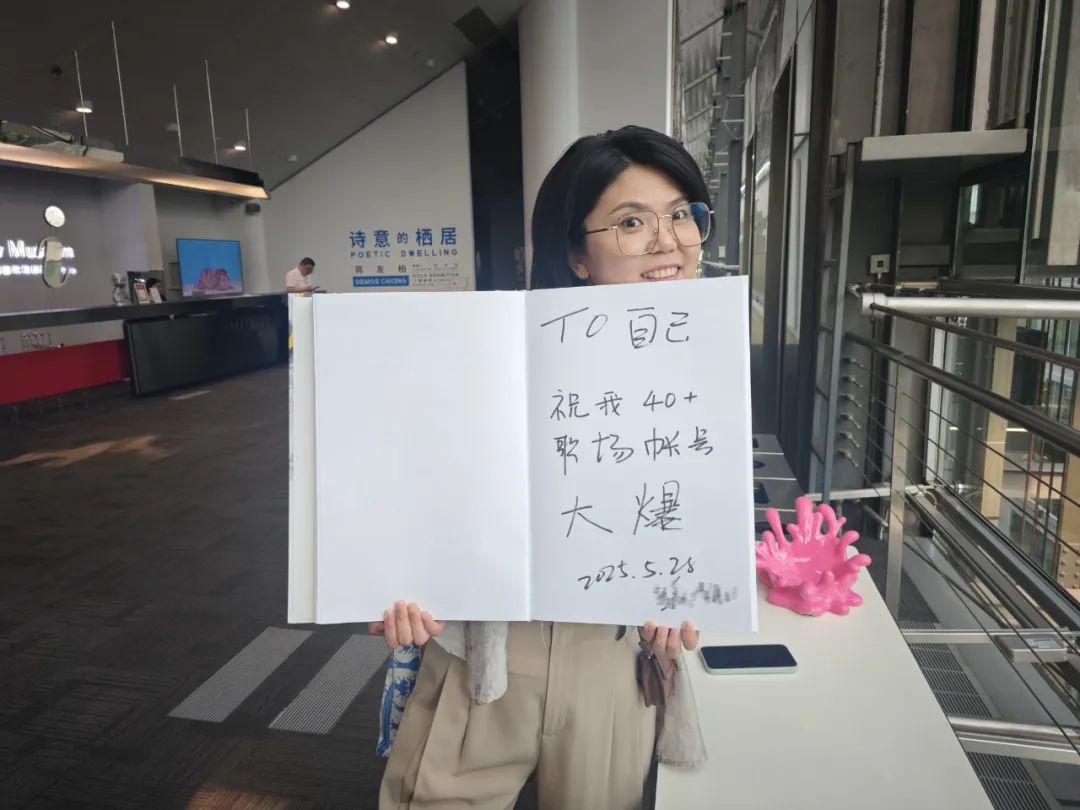 诗意的栖居
POETIC DWELLING
蒋友柏
DEMOS CHIANG
TO 自己
祝我 40+
职场帐号
大爆
2025.5.28